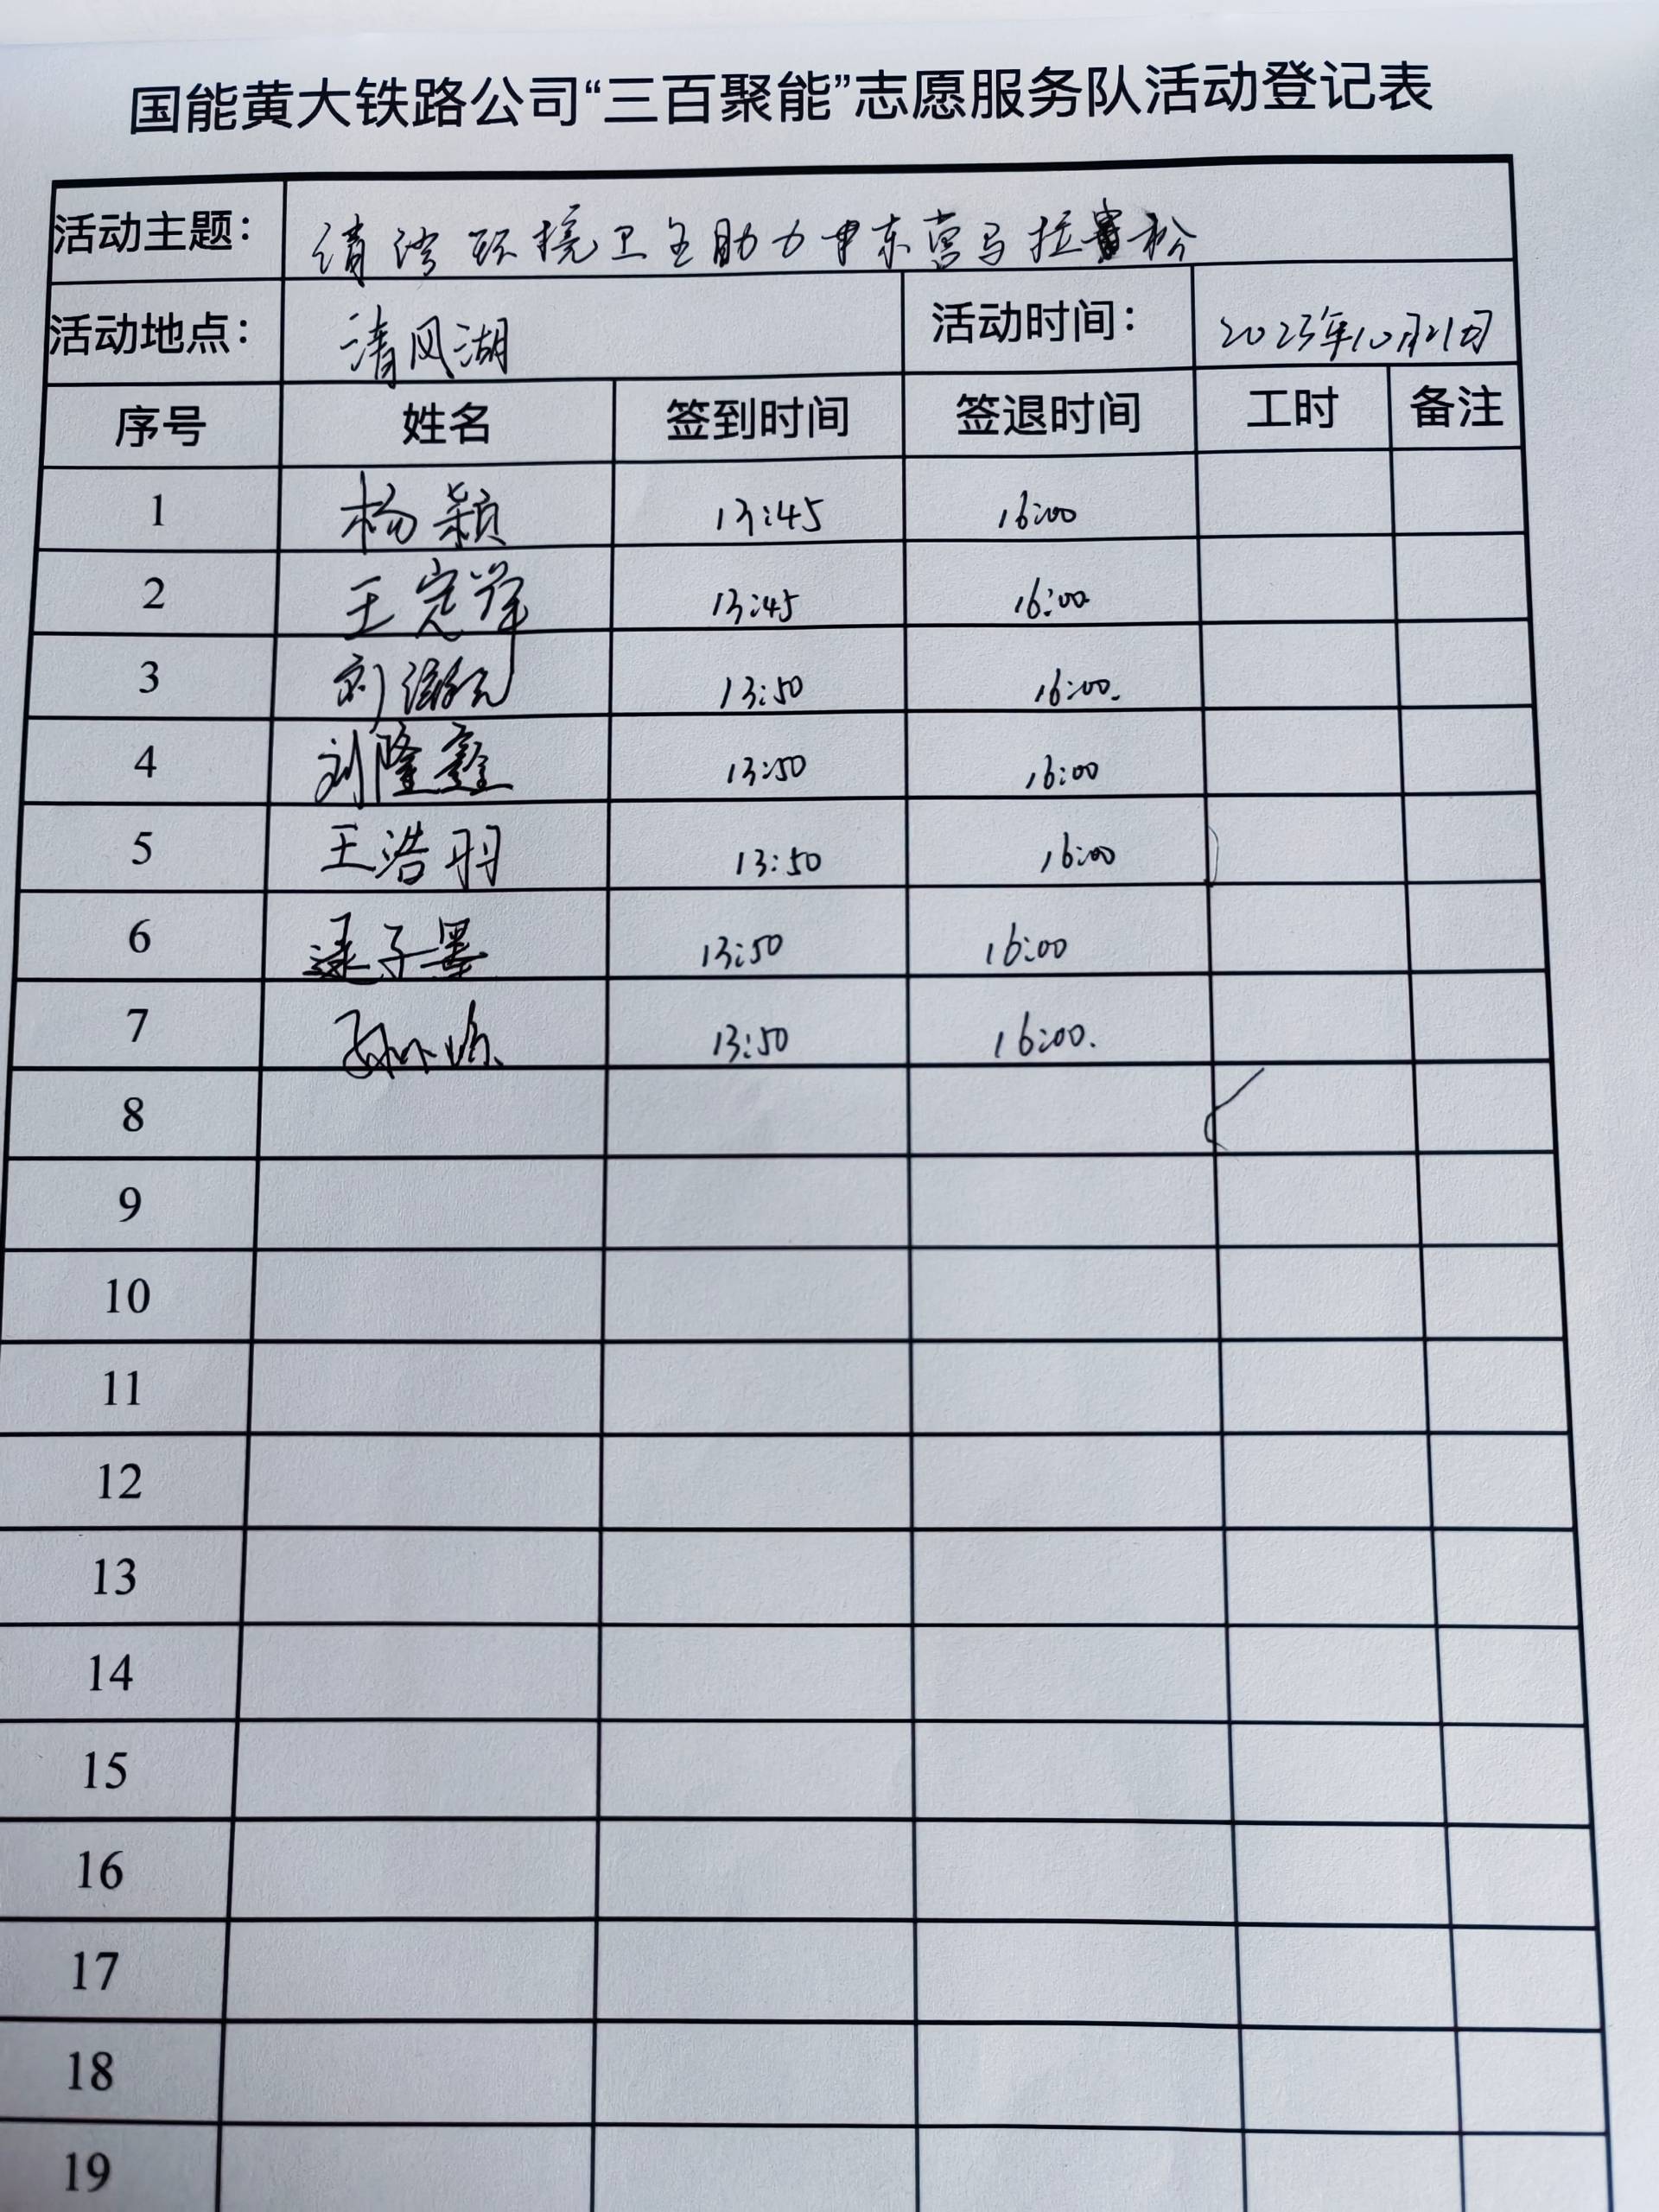 国能黄大铁路公司“三百聚能”志愿服务队活动登记表
活动主题： 清洁环境卫生助力中东营马拉松
活动地点： 清风湖 活动时间： 2023年10月21日
序号 姓名 签到时间 签退时间 工时 备注
1 杨颖 13:45 16:00
2 王 13:45 16:00
3 刘 13:50 16:00.
4 刘隆鑫 13:50 16:00
5 王浩羽 13:50 16:00
6 逯子墨 13:50 16:00
7 13:50 16:00.
8
9
10
11
12
13
14
15
16
17
18
19